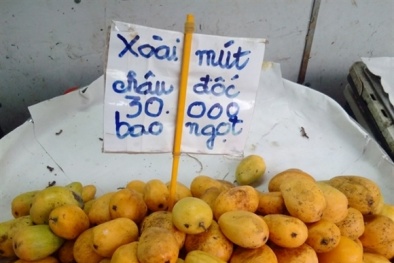 Xoài mút
châu đốc
30.000
bao ngọt